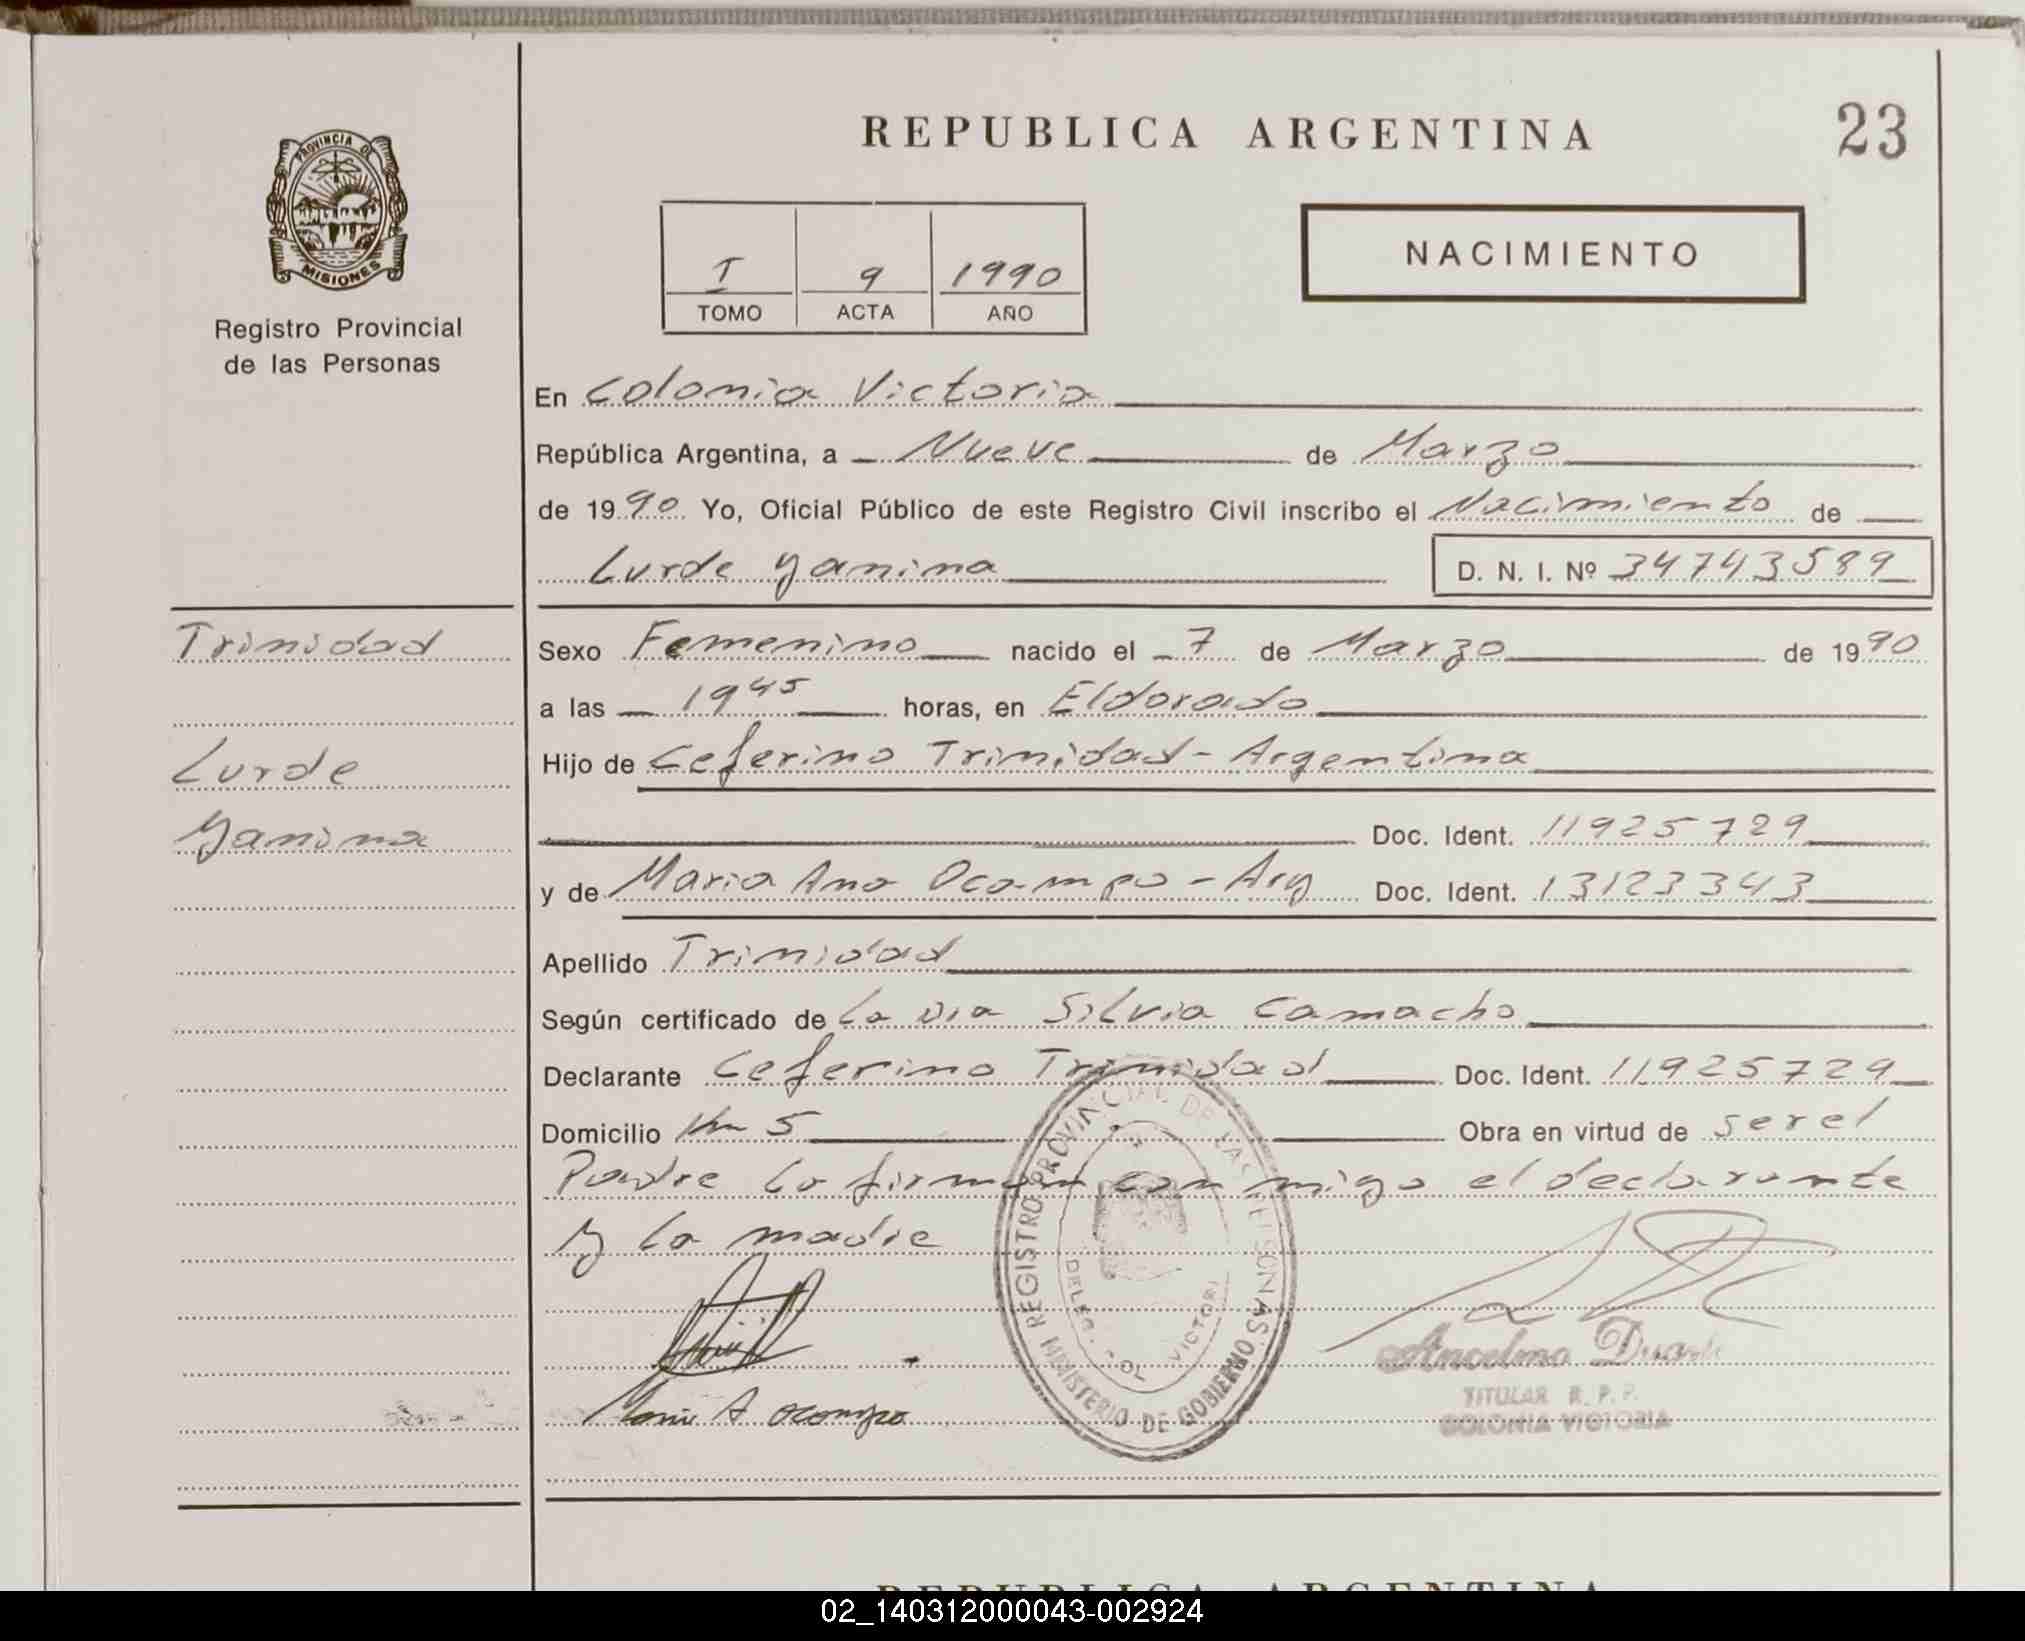 REPUBLICA ARGENTINA
23
PROVINCIA DE
MISIONES
Registro Provincial
de las Personas
I 9 1990
TOMO ACTA AÑO
NACIMIENTO
En Colonia Victoria
República Argentina, a Nueve de Marzo
de 1990 Yo, Oficial Público de este Registro Civil inscribo el Nacimiento de
Lurde Yanina
D. N. I. Nº 34743589
Trinidad
Lurde
Yanina
Sexo Femenino nacido el 7 de Marzo de 1990
a las 19 45 horas, en Eldorado
Hijo de Ceferino Trinidad - Argentina
Doc. Ident. 11925729
y de Maria Ana Ocampo - Arg Doc. Ident. 13123343
Apellido Trinidad
Según certificado de La Dra Silvia Camacho
Declarante Ceferino Trinidad Doc. Ident. 11925729
Domicilio Km 5 Obra en virtud de ser el
Padre La firman con migo el declarante
y La madre
REGISTRO PROVINCIAL DE LAS PERSONAS
MINISTERIO DE GOBIERNO
Maria A Ocampo
Ancelmo Duarte
TITULAR R. P. P.
COLONIA VICTORIA
REPUBLICA ARGENTINA
02_140312000043-002924